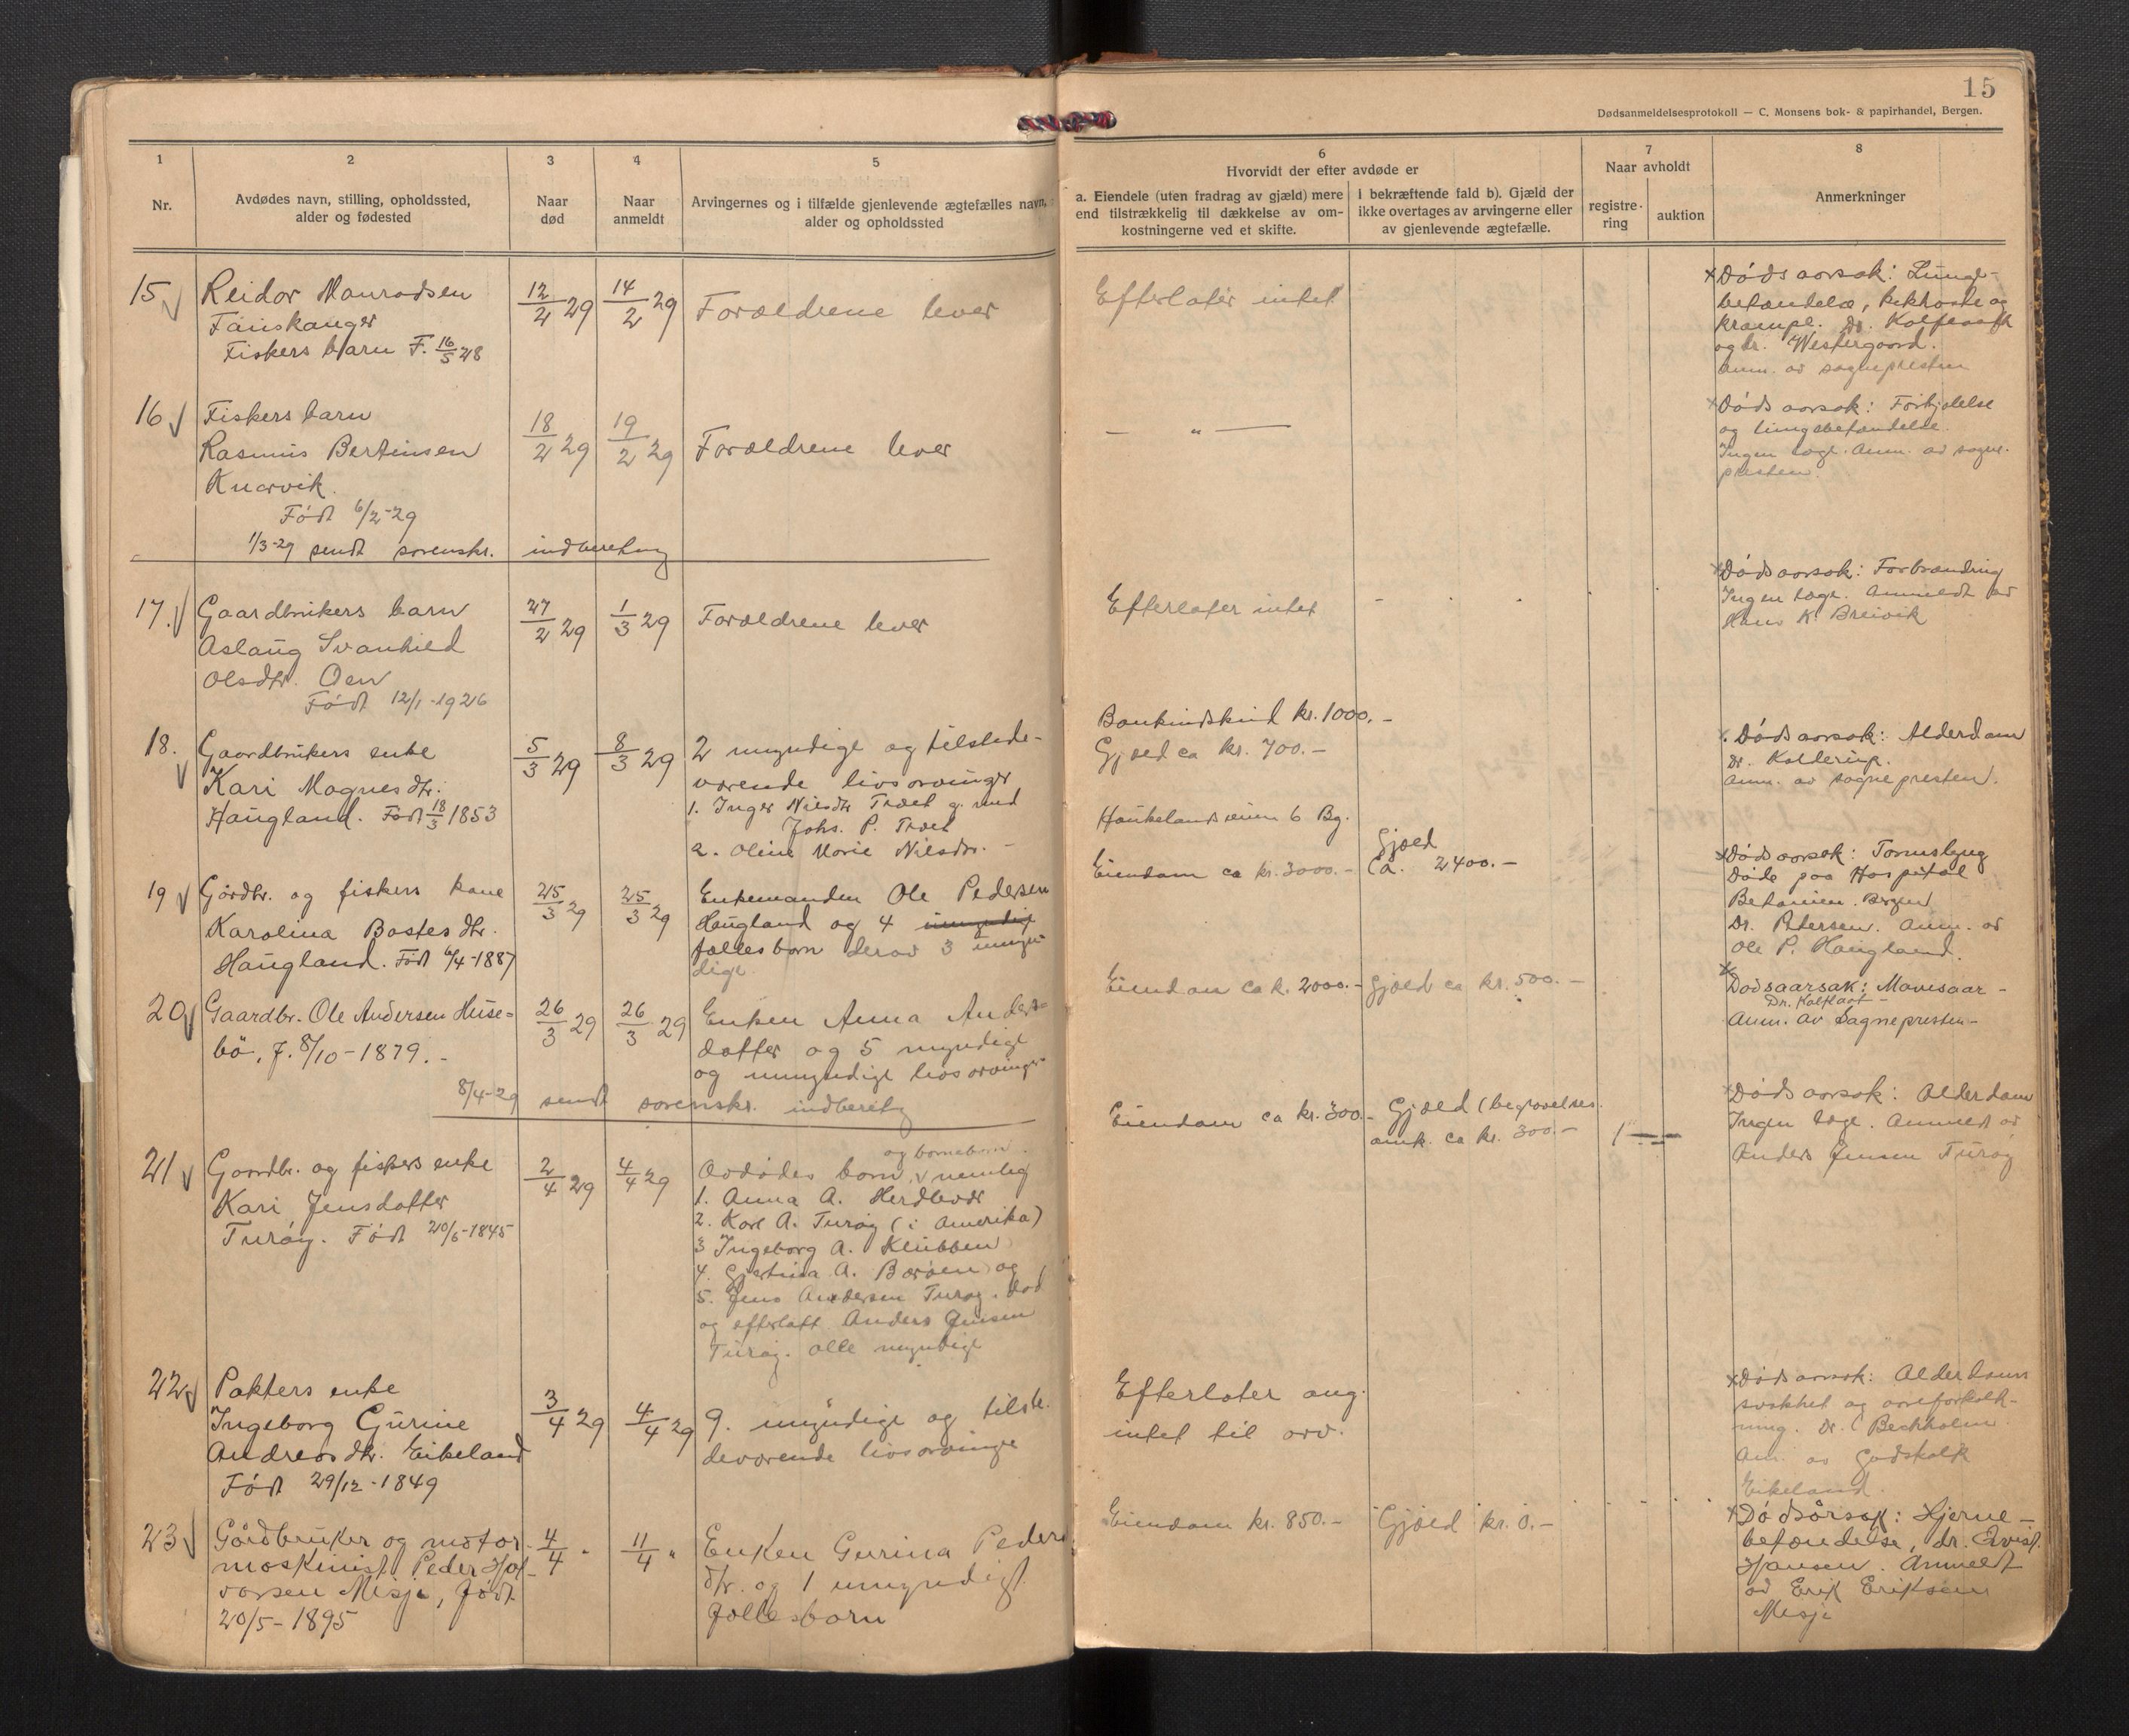 15
Dødsanmeldelsesprotokoll — C. Monsens bok- & papirhandel, Bergen.
1
Nr.
2
Avdødes navn, stilling, opholdssted,
alder og fødested
3
Naar
død
4
Naar
anmeldt
5
Arvingernes og i tilfælde gjenlevende ægtefælles navn,
alder og opholdssted
6
Hvorvidt der efter avdøde er
a. Eiendele (uten fradrag av gjæld) mere
end tilstrækkelig til dækkelse av om-
kostningerne ved et skifte.
I bekræftende fald b). Gjæld der
ikke overtages av arvingerne eller
av gjenlevende ægtefælle.
7
Naar avholdt
registre-
ring
auktion
8
Anmerkninger
15
Reidar Monradsen
Fauskanger
Fiskers barn F. 16/5 28
12/2 29
14/2 29
Forældrene lever
Efterlater intet
Dødsaarsak: Lunge-
betændelse, kikhoste og
krampe. Dr.
og dr. Westergaard.
Anm. av sognepresten
16
Fiskers barn
Rasmus Bertinsen
Knarvik.
Født 6/2-29
18/2 29
19/2 29
Forældrene lever
— " —
Dødsaarsak: Forkjølelse
og lungebetændelse.
Ingen læge. Anm. av sogne-
presten.
1/3-29 sendt sorenskr. indberetng
17.
Gaardbrukers barn
Aslaug Svanhild
Olsdtr. Oen
Født 12/1-1926
27/2 29
1/3 29
Forældrene lever
Efterlater intet
Dødsaarsak: Forbrænding
Ingen læge. Anmeldt av
Hans K. Breivik
18.
Gaardbrukers enke
Kari Magnesdtr.
Haugland. Født 18/3 1853
5/3 29
8/3 29
2 myndige og tilstede-
værende livsarvinger
1. Inger Nilsdtr Træet g. med
Johs. P. Træet
2. Oline Marie Nilsdtr. -
Bankindskud kr. 1000.-
Gjæld ca kr. 700.-
Dødsaarsak: Alderdom
Dr. Kolderup.
Anm. av sognepresten.
19
Gårdbr. og fiskers kone
Karolina Bastesdtr.
Haugland. Født 6/4-1887
25/3 29
25/3 29
Enkemanden Ole Pedersen
Haugland og 4 umyndige
fællesbarn derav 3 umyn-
dige
6 Bg.
Eiendom ca kr. 3000.-
Gjæld
ca. 2400.-
Dødsaarsak:
Døde paa Hospital
Betanien. Bergen
Dr. Petersen. Anm. av
Ole P. Haugland.
20
Gaardbr. Ole Andersen Huse-
bö, f. 8/10-1879.-
26/3 29
26/3 29
Enken Anna Anders-
datter og 5 myndige
og umyndige livsarvinger
Eiendom ca k. 2000.-
Gjæld ca kr. 500.-
Dødsaarsak: Mavesaar-
Dr. Kalfaat -
Anm. av Sagnepresten-
8/4-29 sendt sorenskr. indberetng
21
Gaardbr. og fiskers enke
Kari Jensdatter
Turøy. Født 20/6-1845
2/4 29
4/4 29
og barnebarn.
Avdødes barn, nemlig
1. Anna A. Herdlevær
2. Karl A. Turøy (i Amerika)
3 Ingeborg A. Klubben
4. Gjertina A. Barøen og
5. Jens Andersen Turøy, død
og efterlatt Anders Jensen
Turøy. alle myndige
Eiendom ca kr. 300.-
Gjæld (begravelses
omk. ca kr. 300.-
Dødsaarsak: Alderdom
Ingen læge. Anmeldt av
Anders Jensen Turøy
22
Pakters enke
Ingeborg Gurine
Andreasdtr. Eikeland
Født 29/12-1849
3/4 29
4/4 29
9. myndige og tilste-
deværende livsarvinge
Efterlater ang.
intet til arv.
Dødsaarsak: Alderdoms
svakhet og aareforkalk-
ning. Dr.
Anm. av Godskalk
Eikeland.
23
Gårdbruker og motor-
maskinist Peder Hal-
vorsen Misje, født
20/5-1895
4/4 "
11/4 "
Enken Gurina Peders
dtr. og 1 umyndigt
fællesbarn
Eiendom kr. 850.-
Gjæld kr. 0.-
Dødsårsak: Hjerne-
betændelse, dr. Qvist
Hansen. Anmeldt
av Erik Eriksen
Misje